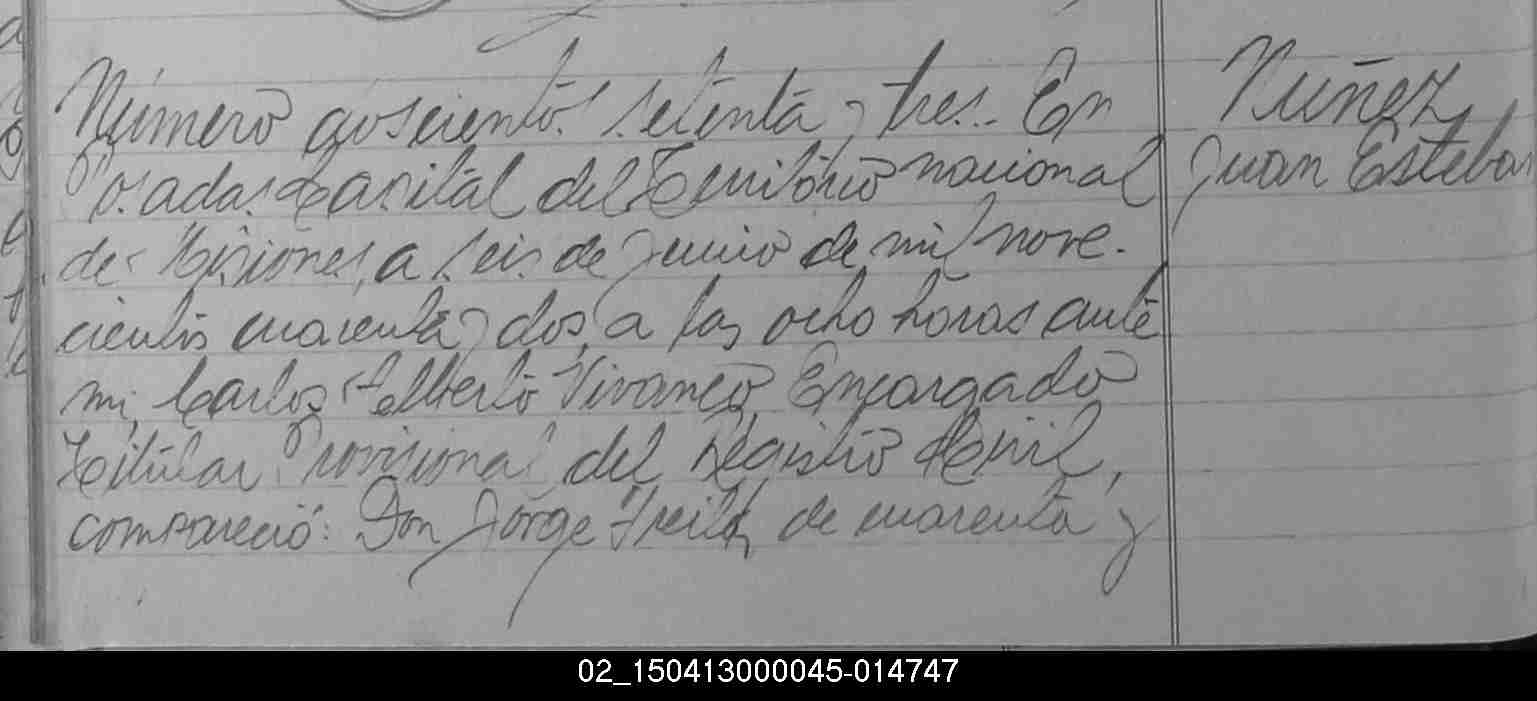 Número doscientos setenta y tres. En
Posadas, Capital del Territorio nacional
de Misiones, a seis de Junio de mil nove-
cientos cuarenta y dos, a las ocho horas ante
mi, Carlos Alberto Vivanco, Encargado
Titular Provisional del Registro Civil,
compareció: Don Jorge de cuarenta y
Nuñez
Juan Esteban
02_150413000045-014747